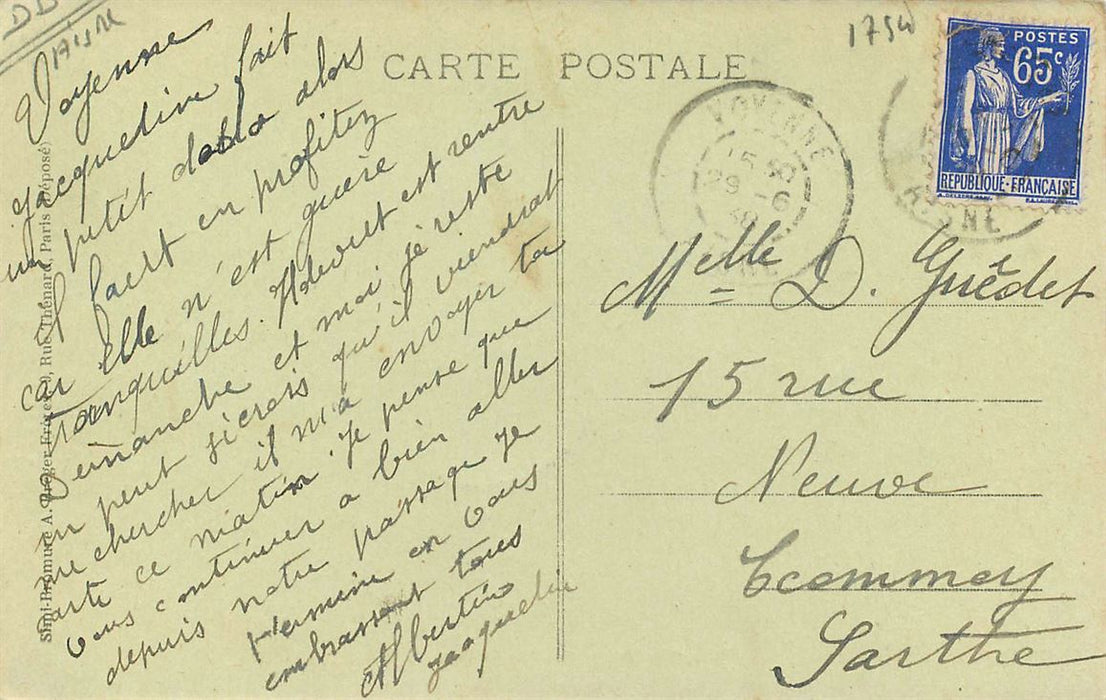 DD
AISNE
1750
CARTE POSTALE
POSTES
65c
RÉPUBLIQUE-FRANÇAISE
VOYENNE
15 30
29 -6
AISNE
Simi-Bromure A. Breger Frères, Rue Thénard, Paris (Déposé)
Voyenne
Jacqueline fait
un petit dodo alors
il faut en profitez
car elle n'est guère
tranquilles. est rentre
Dimanche et moi je reste
un peut j'écrois qu'il viendrat
me chercher il m'a envoyer ta
carte ce matin. Je pense que
vous continuer a bien aller
depuis notre passage je
termine en vous
embrassant tous
Albertine
Jacqueline
Melle D. Guédet
15 rue
Neuve
Ecommoy
Sarthe